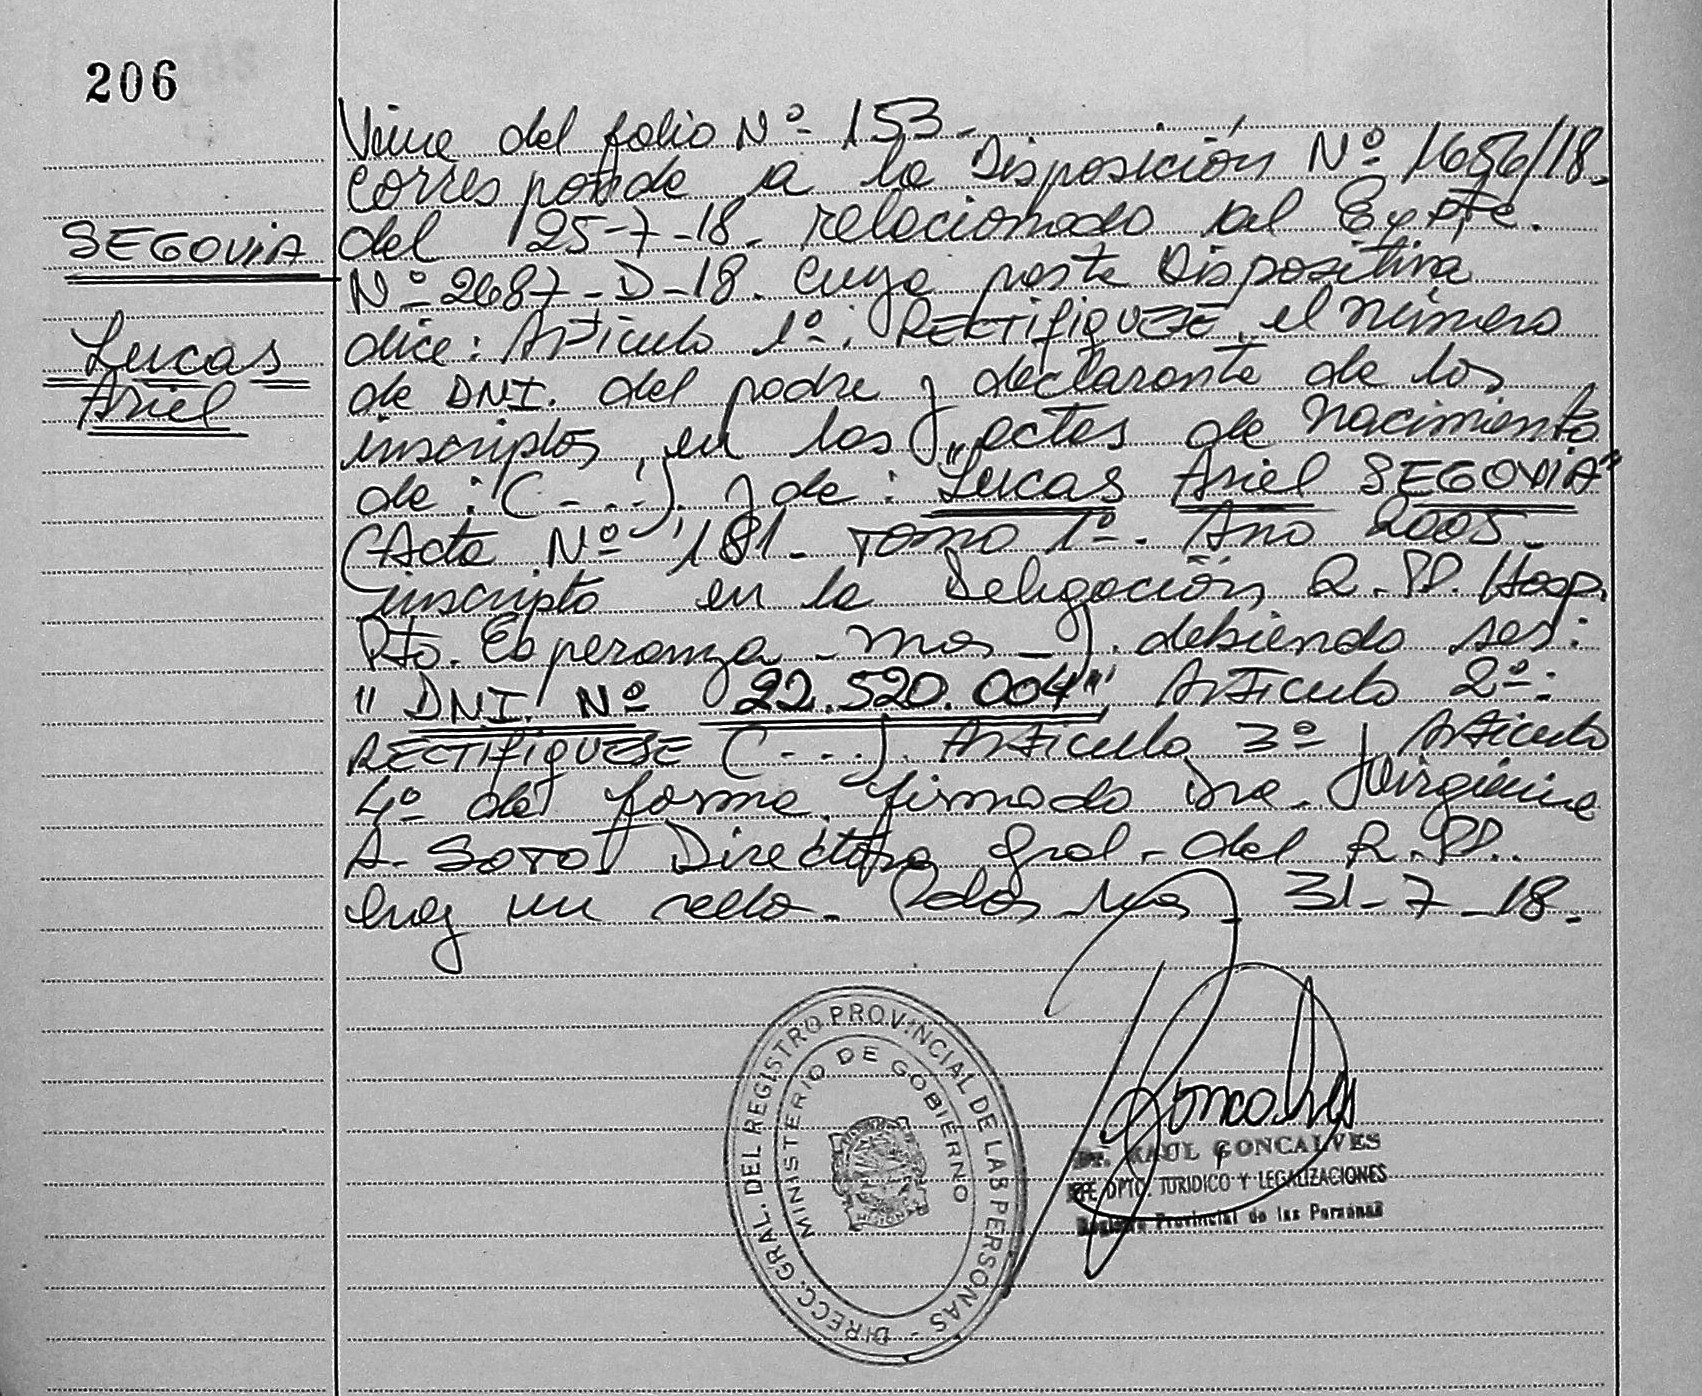 206
SEGOVIA
Lucas
Ariel
Viene del folio Nº 153-
corresponde a la Disposición Nº 1656/18.
del 25-7-18. relacionado al Expte.
Nº 2687-D-18. cuya parte Dispositiva
dice: Artículo 1º: RECTIFIQUESE, el número
de DNI. del padre y declarante de los
inscriptos, en las "actas de nacimiento
de: (----). y de: Lucas Ariel SEGOVIA"
(Acta Nº 181- Tomo 1º. Año 2005-
inscripto en la Delegación R.PP. Hosp.
Pto. Esperanza - Mnes -). debiendo ser:
"DNI. Nº 22.520.004", Artículo 2º:
RECTIFIQUESE (----). Artículo 3º y Artículo
4º de forma, firmado Dra. Virginia
A. SOTO Directora Gral. del R.PP.
hay un sello. Pdas Mnes, 31-7-18.
Goncalves
Dr. RAUL GONCALVES
JEFE DPTO. JURIDICO Y LEGALIZACIONES
Registro Provincial de las Personas
DIRECC. GRAL. DEL REGISTRO PROVINCIAL DE LAS PERSONAS -
MINISTERIO DE GOBIERNO
MISIONES